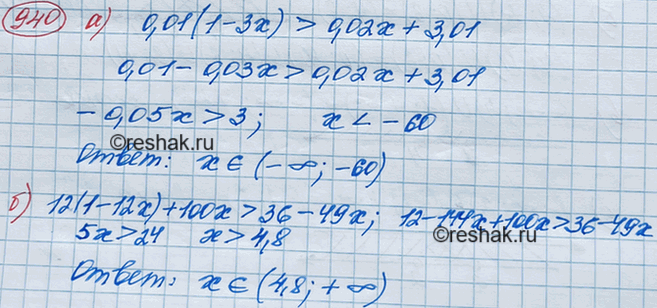 940 а) 0,01(1-3x) > 0,02x + 3,01
0,01 - 0,03x > 0,02x + 3,01
- 0,05x > 3; x < - 60
©reshak.ru
Ответ: x ∈ (-∞; -60)
б) 12(1-12x)+100x > 36 - 49x; 12-144x+100x>36-49x
5x > 24 x > 4,8
©reshak.ru
Ответ: x ∈ (4,8; +∞)